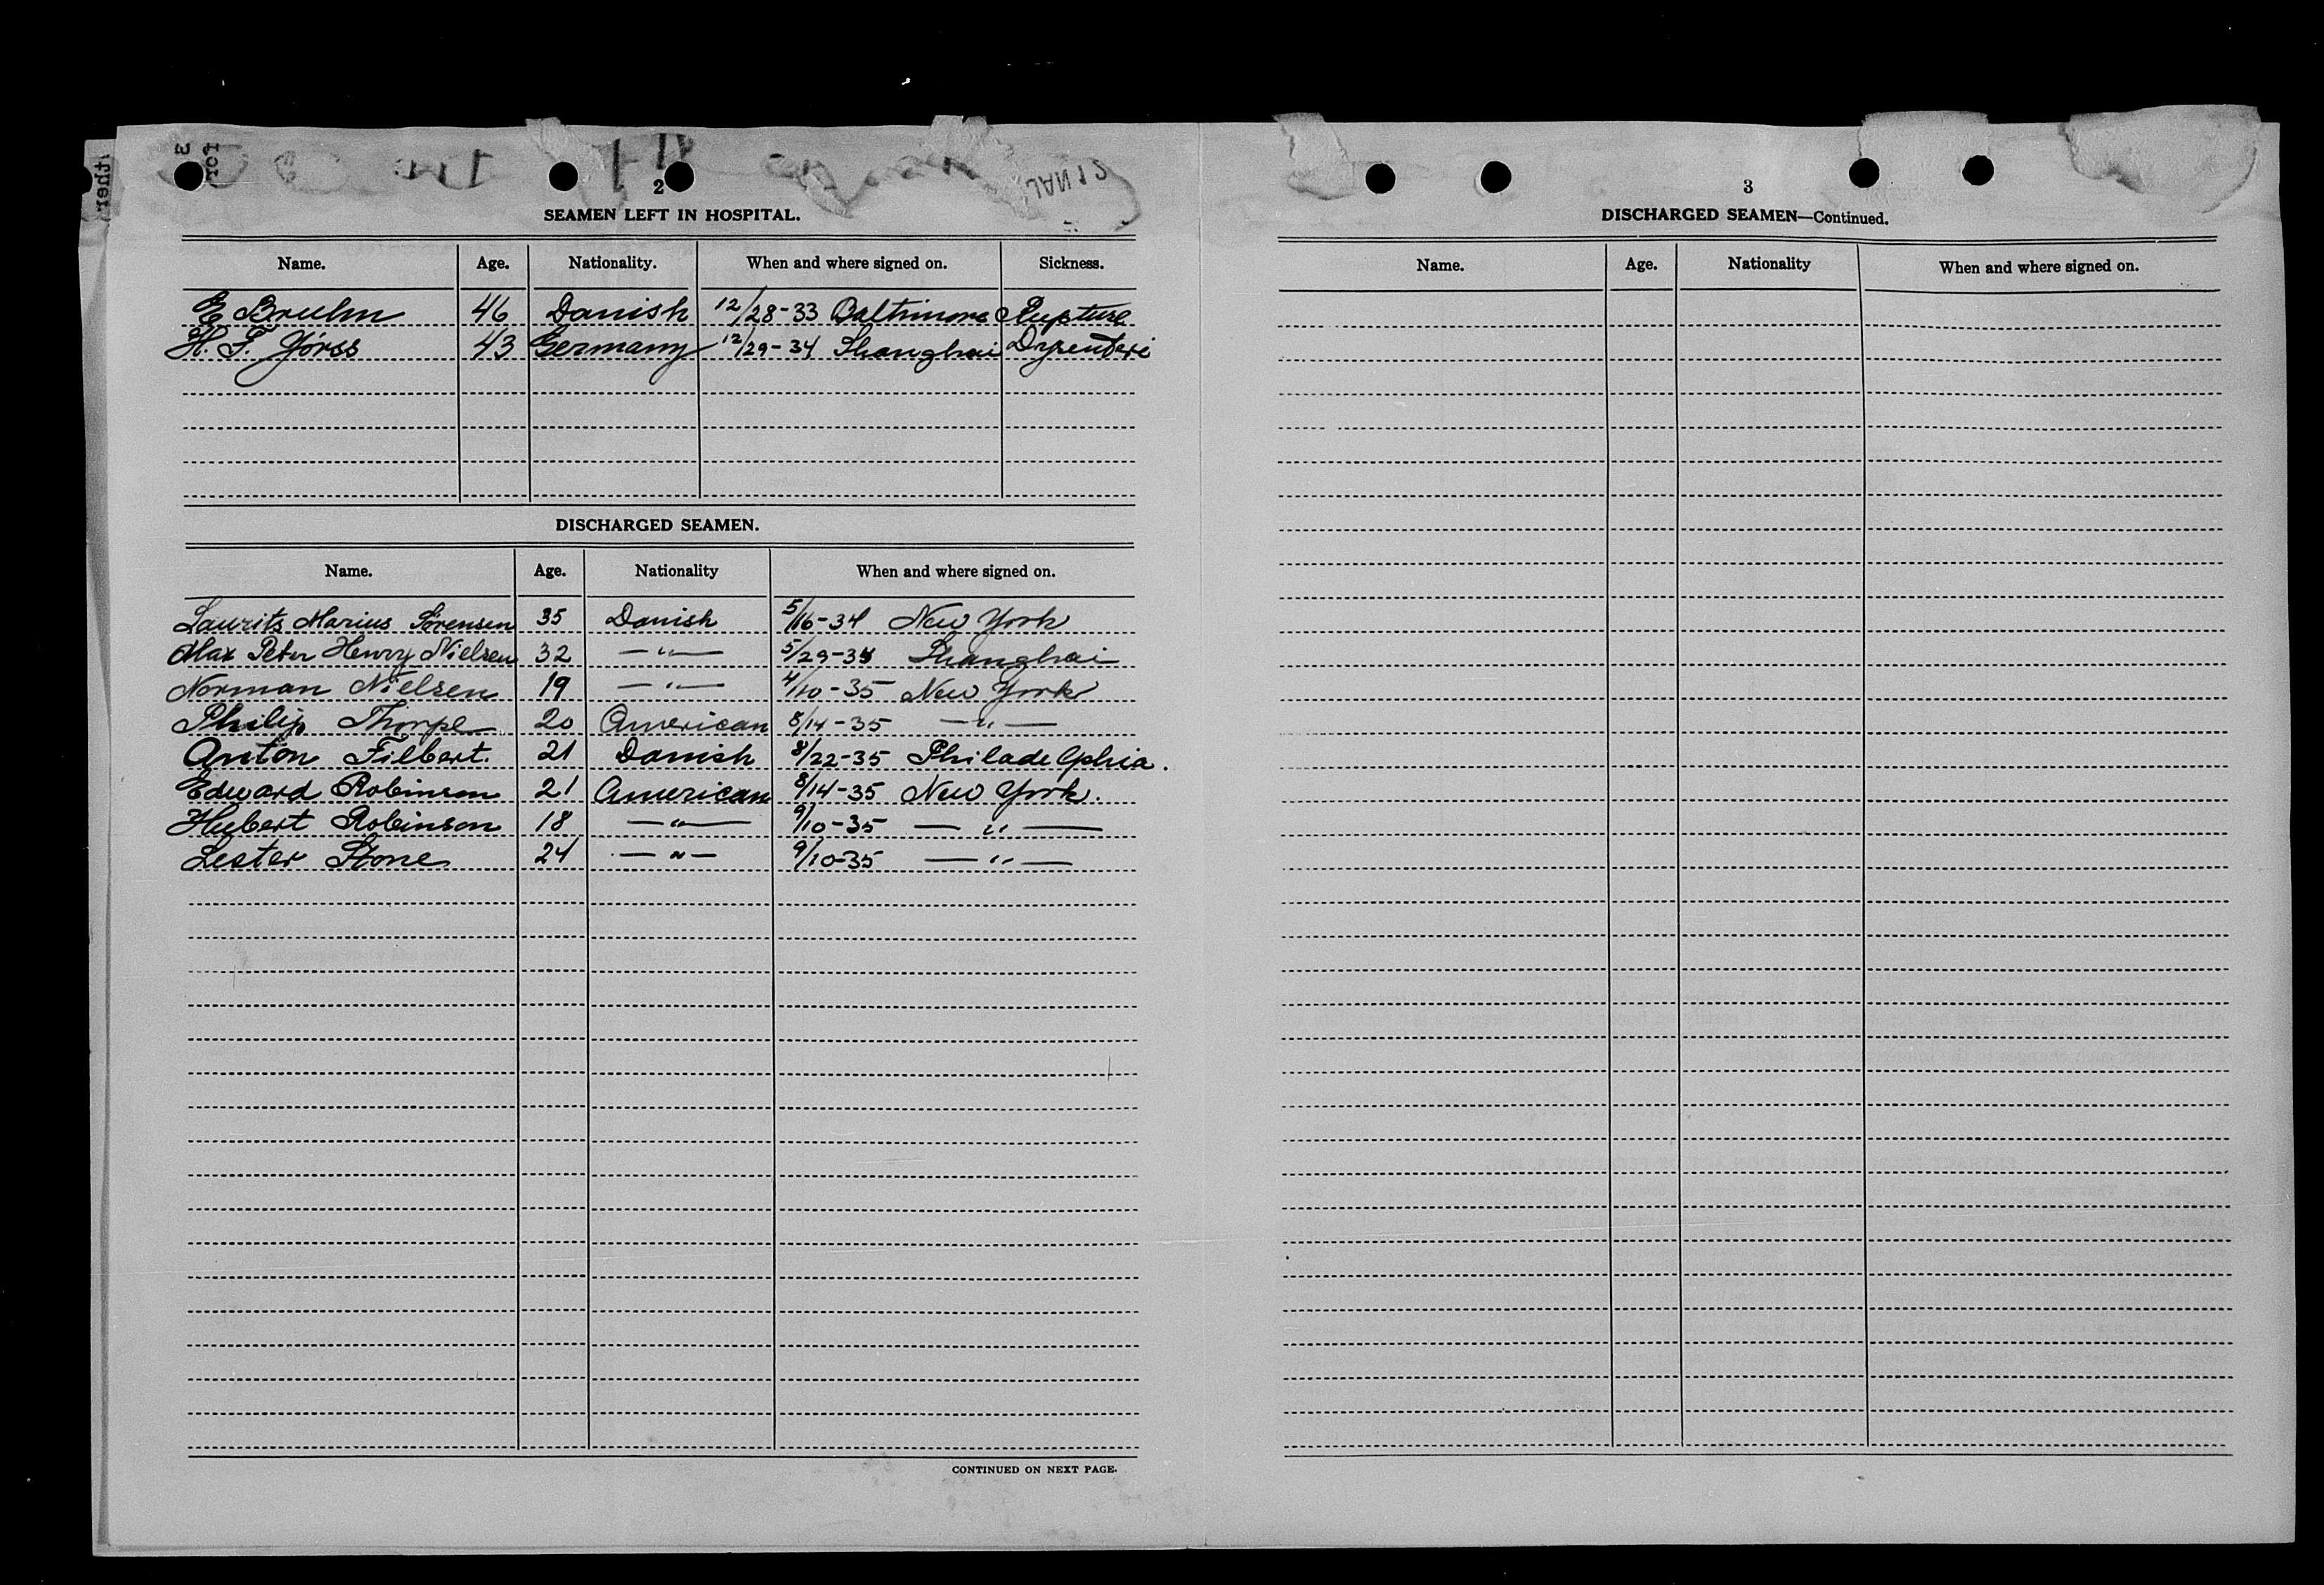 2
SEAMEN LEFT IN HOSPITAL.
Name. Age. Nationality. When and where signed on. Sickness.
E Bruhn 46 Danish 12/28-33 Baltimore Rupture
H. F. Jörss 43 Germany 12/29-34 Shanghai Dysenteri
DISCHARGED SEAMEN.
Name. Age. Nationality When and where signed on.
Laurits Marius Sørensen 35 Danish 5/16-34 New York
Max Peter Henry Nielsen 32 —〃— 5/29-34 Shanghai
Norman Nielsen 19 —〃— 4/10-35 New York
Philip Thorpe 20 American 8/14-35 —〃—
Anton Filbert. 21 Danish 8/22-35 Philadelphia.
Edward Robinson 21 American 8/14-35 New York.
Hubert Robinson 18 —〃— 9/10-35 —〃—
Lester Stone 24 —〃— 9/10-35 —〃—
CONTINUED ON NEXT PAGE.
3
DISCHARGED SEAMEN—Continued.
Name. Age. Nationality When and where signed on.